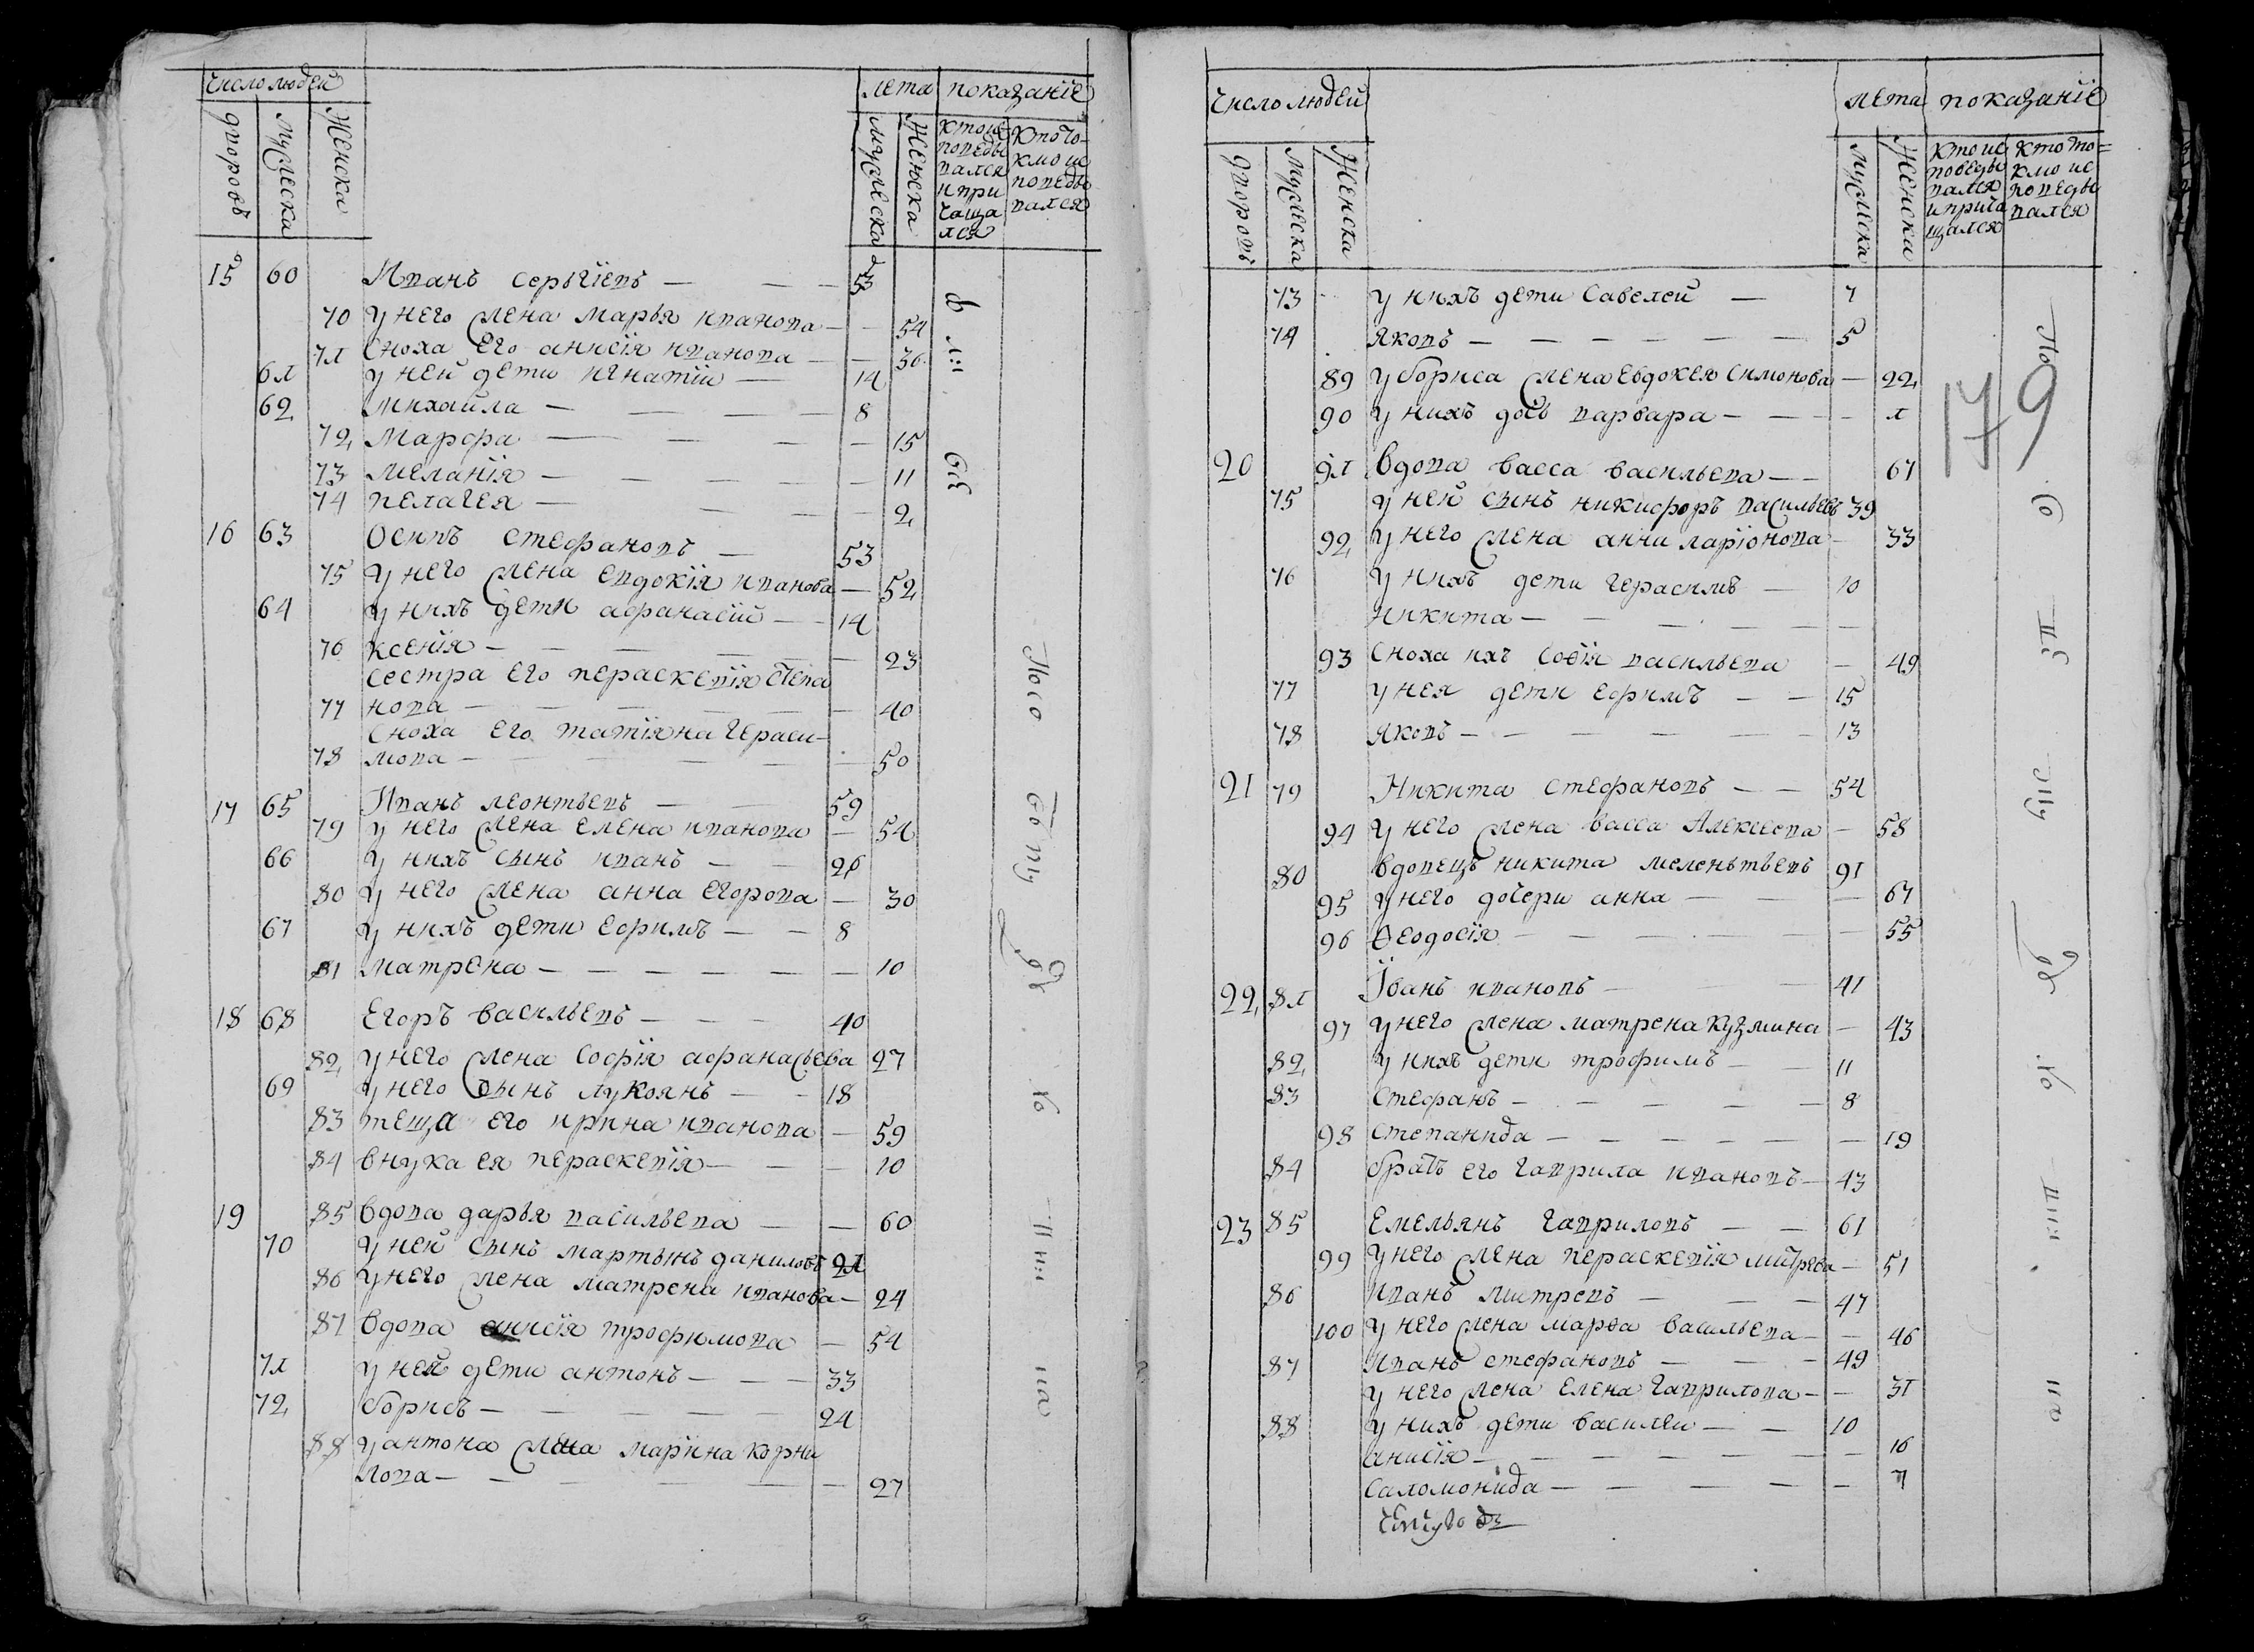 число людей
лета показаніе
дворовъ мужеска женска
мужеска женска
кто ис
поведы
вался
и при
чаща
лся
кто то-
кмо ис
поведы
вался
15 60 Иванъ Сергіевъ — — — 53
70 у него жена марья иванова — — 54
71 Сноха его анисія иванова — — 36
61 у ней дети игнатіи — 14
62 михайла — — — — 8
72 Марфа — — — — 15
73 меланія — — — — — 11
74 пелагея — — — — 2
16 63 Осипъ стефановъ — 53
75 У него жена евдокія иванова — 52
64 у нихъ дети афанасій — — 14
76 ксенія — — — — — 23
сестра его параскевія степа
77 нова — — — — — — 40
Сноха его татіяна гераси-
78 мова — — — — — — 50
17 65 Иванъ леонтьевъ — — 59
79 у него жена елена иванова — 54
66 У нихъ сынъ иванъ — — 26
80 у него жена анна егорова — 30
67 у нихъ дети ефимъ — — 8
81 матрена — — — — — — 10
18 68 Егоръ васильевъ — — — 40
82 у него жена софія афанасьева 27
69 у него сынъ лукоянъ — — 18
83 теща его ирина иванова — 59
84 внука ея пераскевія — — — 10
19 85 вдова дарья васильева — — 60
70 у ней сынъ мартынъ даниловъ 21
86 у него жена матрена иванова — 24
87 вдова анисія трофимова — 54
71 у ней дети антонъ — — — 33
72 борисъ — — — — — 24
88 у антона жена марина корни
лова — — — — — — 27
число людей
лета показаніе
дворовъ мужеска женска
мужеска женска
кто ис
поведы
вался
и прича
щался
кто то=
кмо ис
поведы
вался
73 у нихъ дети савелей — 7
74 яковъ — — — — — — 5
179
89 у бориса жена евдокея симонова — 22
90 у нихъ дочь варвара — — — 1
20 91 Вдова васса васильева — — 67
75 у ней сынъ никифоръ васильевъ 39
92 у него жена анна ларіонова — 33
76 у нихъ дети герасимъ — 10
никита — — — — — —
93 Сноха ихъ софія васильева — 49
77 у нея дети ефимъ — — 15
78 яковъ — — — — — — 13
21 79 Никита стефановъ — — 54
94 у него жена васса Алексеева — 58
80 вдовецъ никита меленьтьевъ 91
95 у него дочери анна — — — 67
96 Ѳеодосія — — — — — — 55
22 81 Іванъ ивановъ — — — 41
97 у него жена матрена кузмина — 43
82 у нихъ дети трофимъ — — 11
83 Стефанъ — — — — — 8
98 степанида — — — — — — 19
84 братъ его гаврила ивановъ — 43
23 85 Емельянъ гавриловъ — — 61
99 у него жена пераскевія митрева — 51
86 иванъ митревъ — — — 47
100 у него жена марѳа васильева — — 46
87 иванъ стефановъ — — — 49
у него жена елена гаврилова — — 31
88 у нихъ дети василеи — — 10
анисія — — — — — — — 16
саломонида — — — — — 7